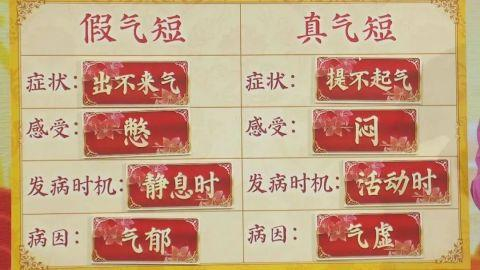 假气短 真气短
症状：出不来气 症状：提不起气
感受：憋 感受：闷
发病时机：静息时 发病时机：活动时
病因：气郁 病因：气虚